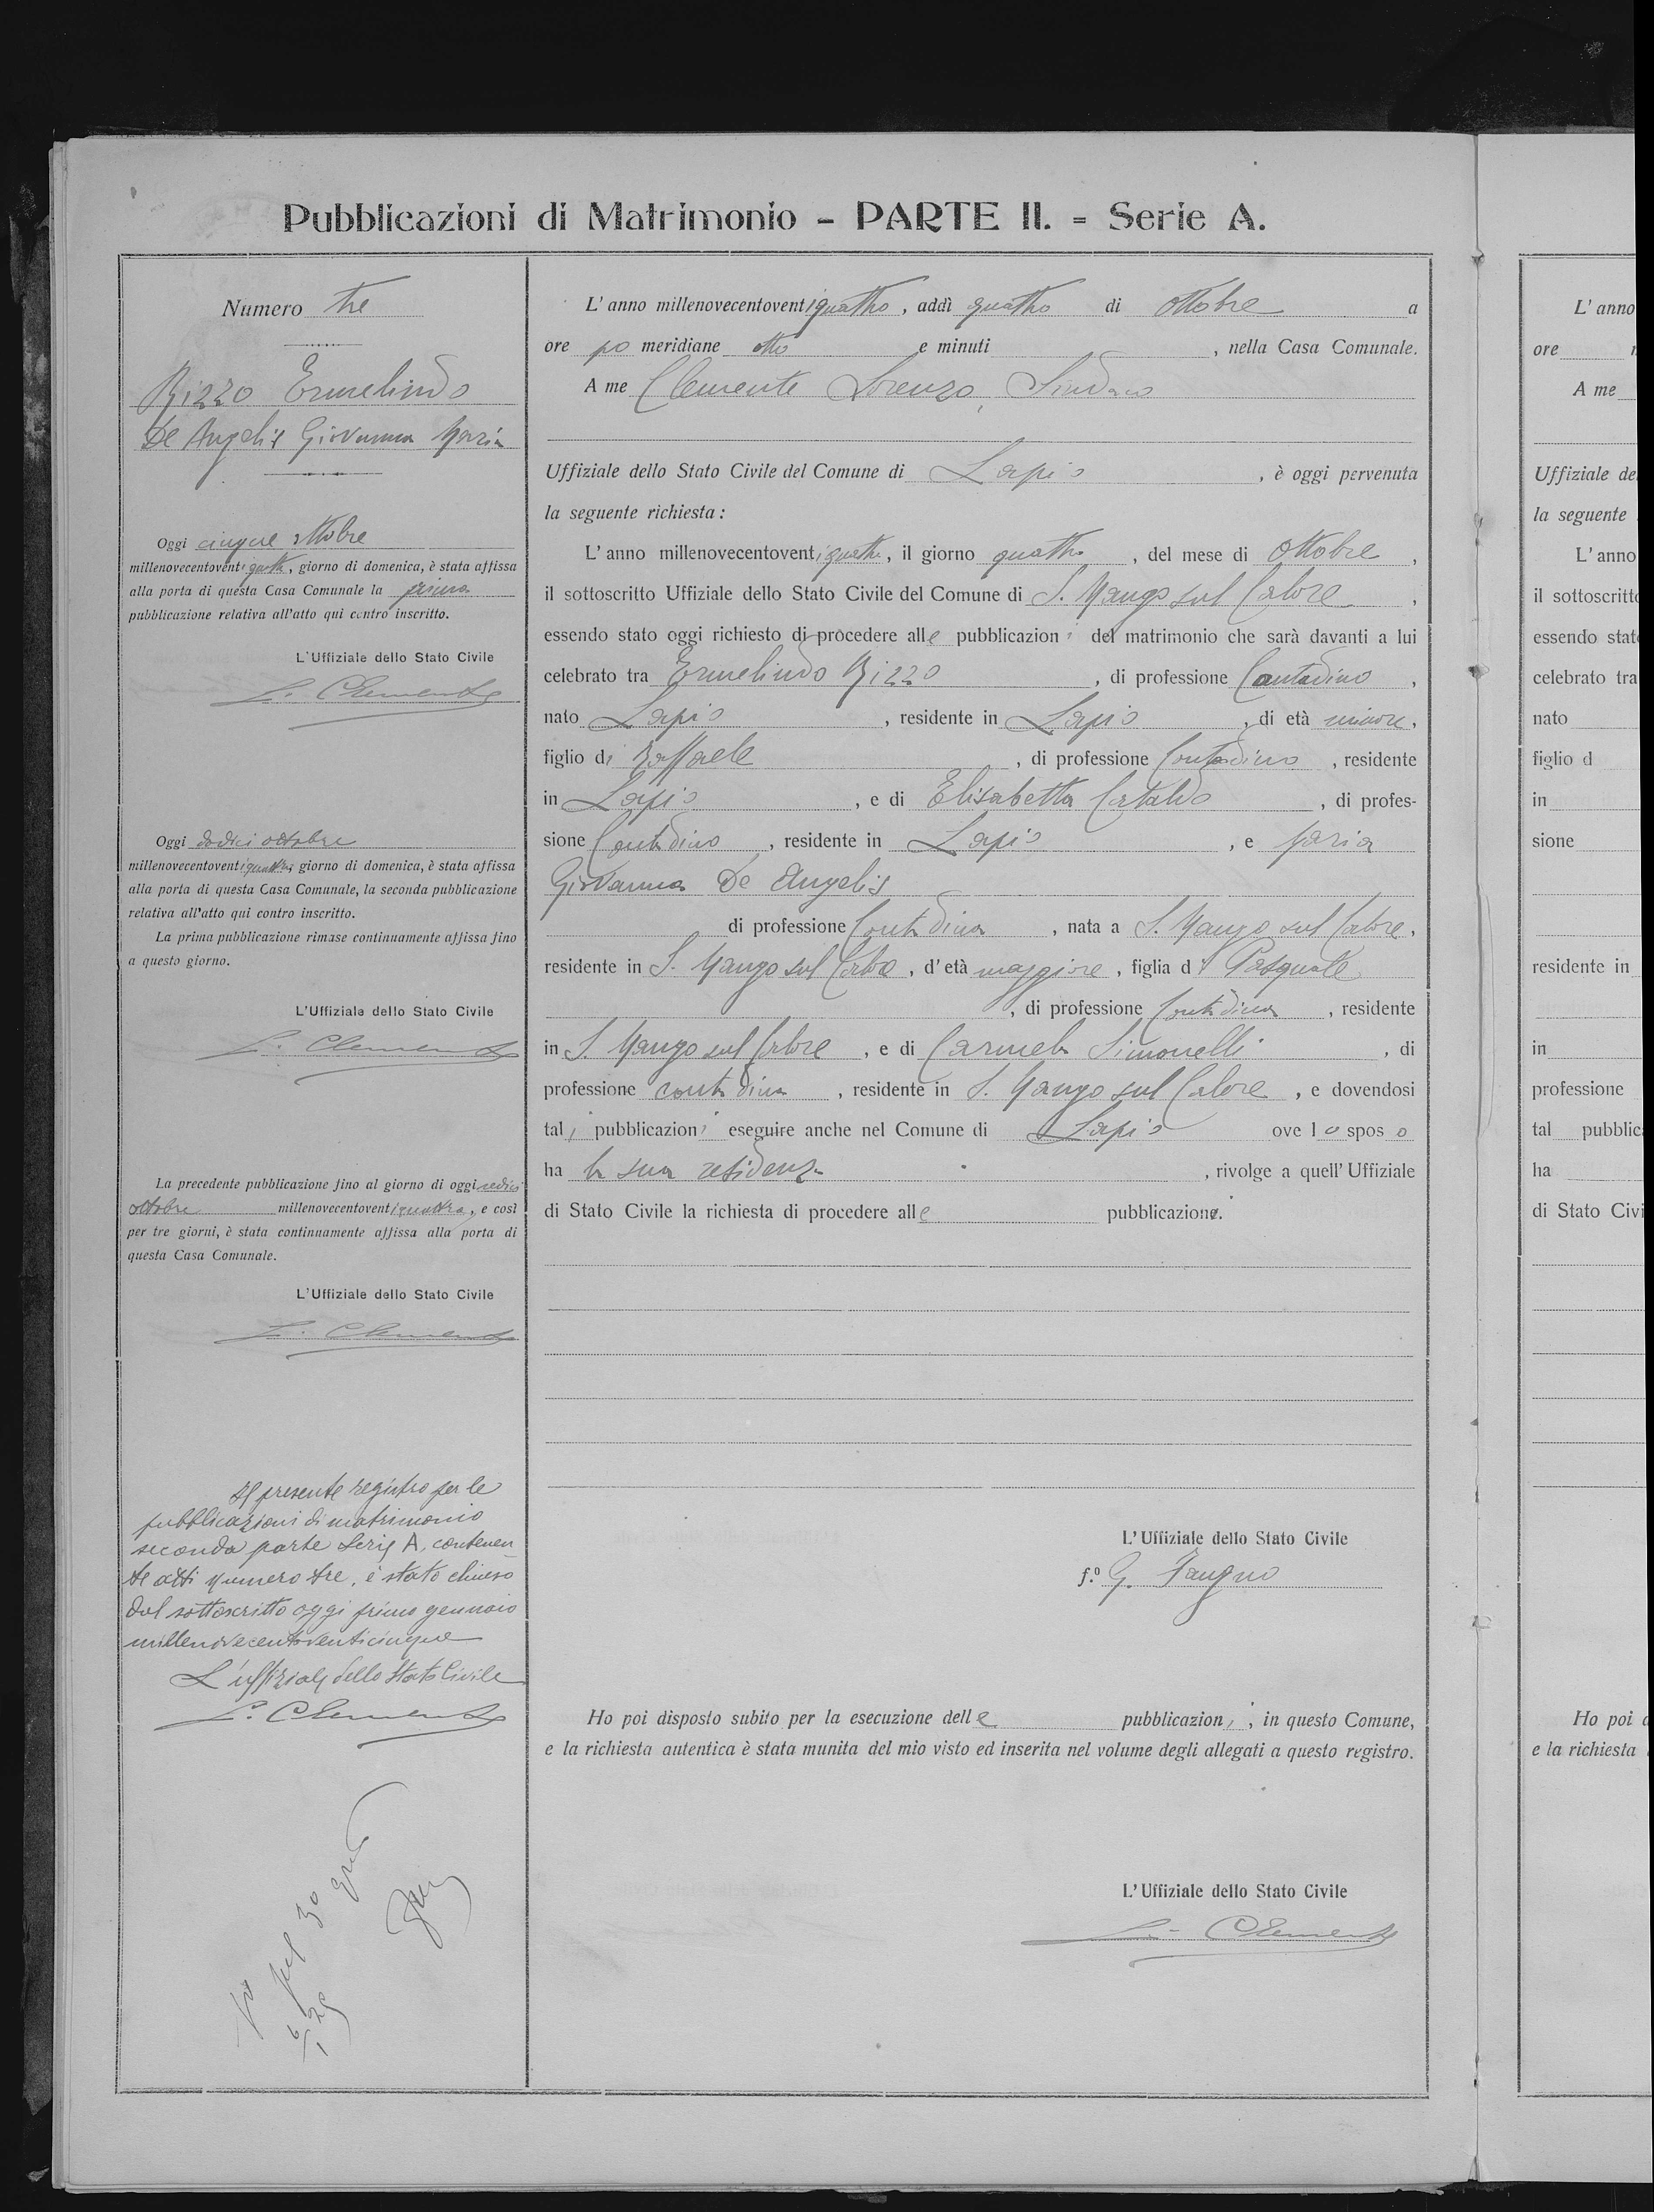 Pubblicazioni di Matrimonio – PARTE II. = Serie A.
Numero tre
Rizzo Ermelindo
De Angelis Giovanna Maria
Oggi cinque ottobre
millenovecentoventiquattro, giorno di domenica, è stata affissa
alla porta di questa Casa Comunale la prima
pubblicazione relativa all'atto qui contro inscritto.
L'Uffiziale dello Stato Civile
L. Clemente
Oggi dodici ottobre
millenovecentoventiquattro, giorno di domenica, è stata affissa
alla porta di questa Casa Comunale, la seconda pubblicazione
relativa all'atto qui contro inscritto.
La prima pubblicazione rimase continuamente affissa fino
a questo giorno.
L'Uffiziale dello Stato Civile
L. Clemente
La precedente pubblicazione fino al giorno di oggi sedici
ottobre millenovecentoventiquattro, e così
per tre giorni, è stata continuamente affissa alla porta di
questa Casa Comunale.
L'Uffiziale dello Stato Civile
L. Clemente
Il presente registro per le
pubblicazioni di matrimonio
seconda parte Serie A, contenen-
te atti numero tre, è stato chiuso
dal sottoscritto oggi primo gennaio
millenovecentoventicinque
L'uffiziale dello Stato Civile
L. Clemente
L'anno millenovecentoventiquattro, addì quattro di ottobre a
ore po meridiane otto e minuti , nella Casa Comunale.
A me Clemente Lorenzo, Sindaco
Uffiziale dello Stato Civile del Comune di Lapio , è oggi pervenuta
la seguente richiesta :
L'anno millenovecentoventiquattro, il giorno quattro , del mese di Ottobre ,
il sottoscritto Uffiziale dello Stato Civile del Comune di S. Mango sul Calore ,
essendo stato oggi richiesto di procedere alle pubblicazioni del matrimonio che sarà davanti a lui
celebrato tra Ermelindo Rizzo , di professione Contadino ,
nato Lapio , residente in Lapio , di età minore,
figlio di Raffaele , di professione Contadino , residente
in Lapio , e di Elisabetta Cataldo , di profes-
sione Contadino , residente in Lapio , e Maria
Giovanna De Angelis
di professione Contadina , nata a S. Mango sul Calore,
residente in S. Mango sul Calore , d'età maggiore , figlia di Pasquale
, di professione Contadino , residente
in S. Mango sul Calore , e di Carmela Simonelli , di
professione contadina , residente in S. Mango sul Calore , e dovendosi
tali pubblicazioni eseguire anche nel Comune di Lapio ove lo sposo
ha la sua residenza , rivolge a quell'Uffiziale
di Stato Civile la richiesta di procedere alle pubblicazione.
L'Uffiziale dello Stato Civile
f.º G.
Ho poi disposto subito per la esecuzione delle pubblicazioni, in questo Comune,
e la richiesta autentica è stata munita del mio visto ed inserita nel volume degli allegati a questo registro.
L'Uffiziale dello Stato Civile
L. Clemente
L'anno
ore
A me
Uffiziale de
la seguente
L'anno
il sottoscritto
essendo stato
celebrato tra
nato
figlio d
in
sione
residente in
in
professione
tal pubblic
ha
di Stato Civi
Ho poi
e la richiesta